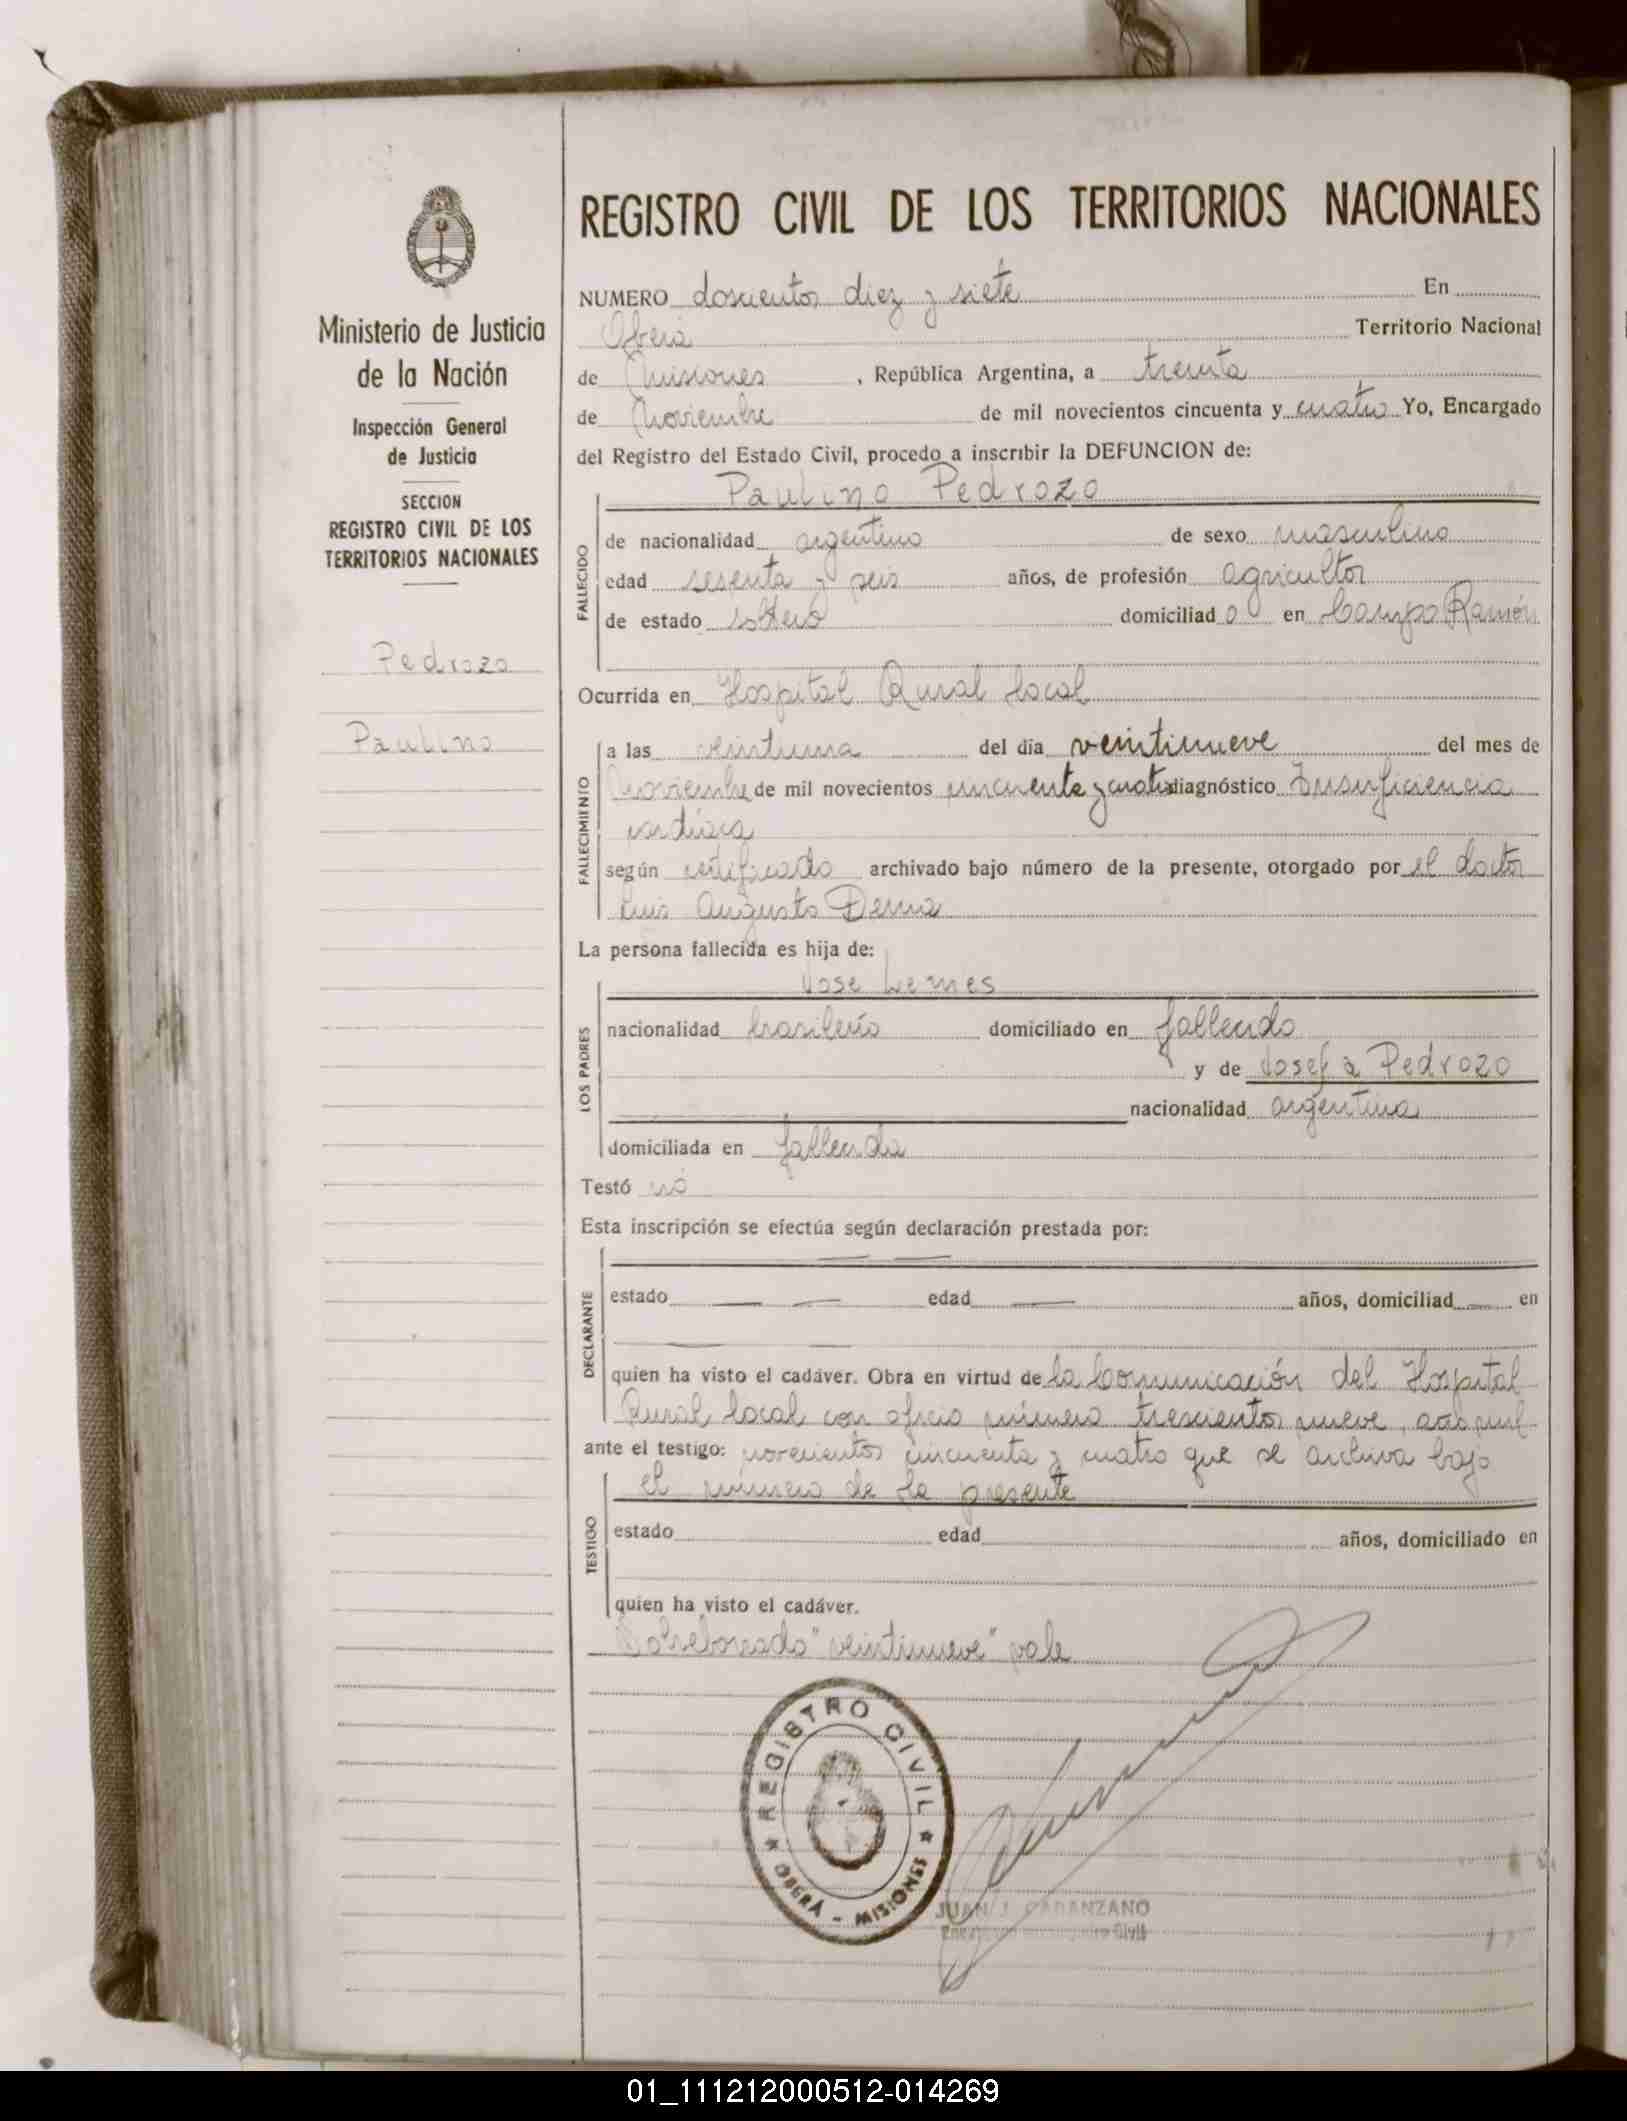 REGISTRO CIVIL DE LOS TERRITORIOS NACIONALES
Ministerio de Justicia
de la Nación
Inspección General
de Justicia
SECCION
REGISTRO CIVIL DE LOS
TERRITORIOS NACIONALES
Pedrozo
Paulino
NUMERO doscientos diez y siete En
Oberá Territorio Nacional
de Misiones, República Argentina, a treinta
de Noviembre de mil novecientos cincuenta y cuatro Yo, Encargado
del Registro del Estado Civil, procedo a inscribir la DEFUNCION de:
Paulino Pedrozo
FALLECIDO
de nacionalidad argentino de sexo masculino
edad sesenta y seis años, de profesión agricultor
de estado soltero domiciliado en Campo Ramón
Ocurrida en Hospital Rural local
FALLECIMIENTO
a las veintiuna del día veintinueve del mes de
Noviembre de mil novecientos cincuenta y cuatro diagnóstico Insuficiencia
cardíaca
según certificado archivado bajo número de la presente, otorgado por el doctor
Luis Augusto Derna
La persona fallecida es hija de:
José Lemes
LOS PADRES
nacionalidad brasileño domiciliado en fallecido
y de Josefa Pedrozo
nacionalidad argentina
domiciliada en fallecida
Testó nó
Esta inscripción se efectúa según declaración prestada por:
DECLARANTE
estado edad años, domiciliad en
quien ha visto el cadáver. Obra en virtud de la Comunicación del Hospital
Rural local con oficio número trescientos nueve, año mil
ante el testigo: novecientos cincuenta y cuatro que se archiva bajo
el número de la presente
TESTIGO
estado edad años, domiciliado en
quien ha visto el cadáver.
Sobreborrado "veintinueve" vale
REGISTRO CIVIL
OBERÁ - MISIONES
JUAN J. CARANZANO
Encargado Registro Civil
01_111212000512-014269